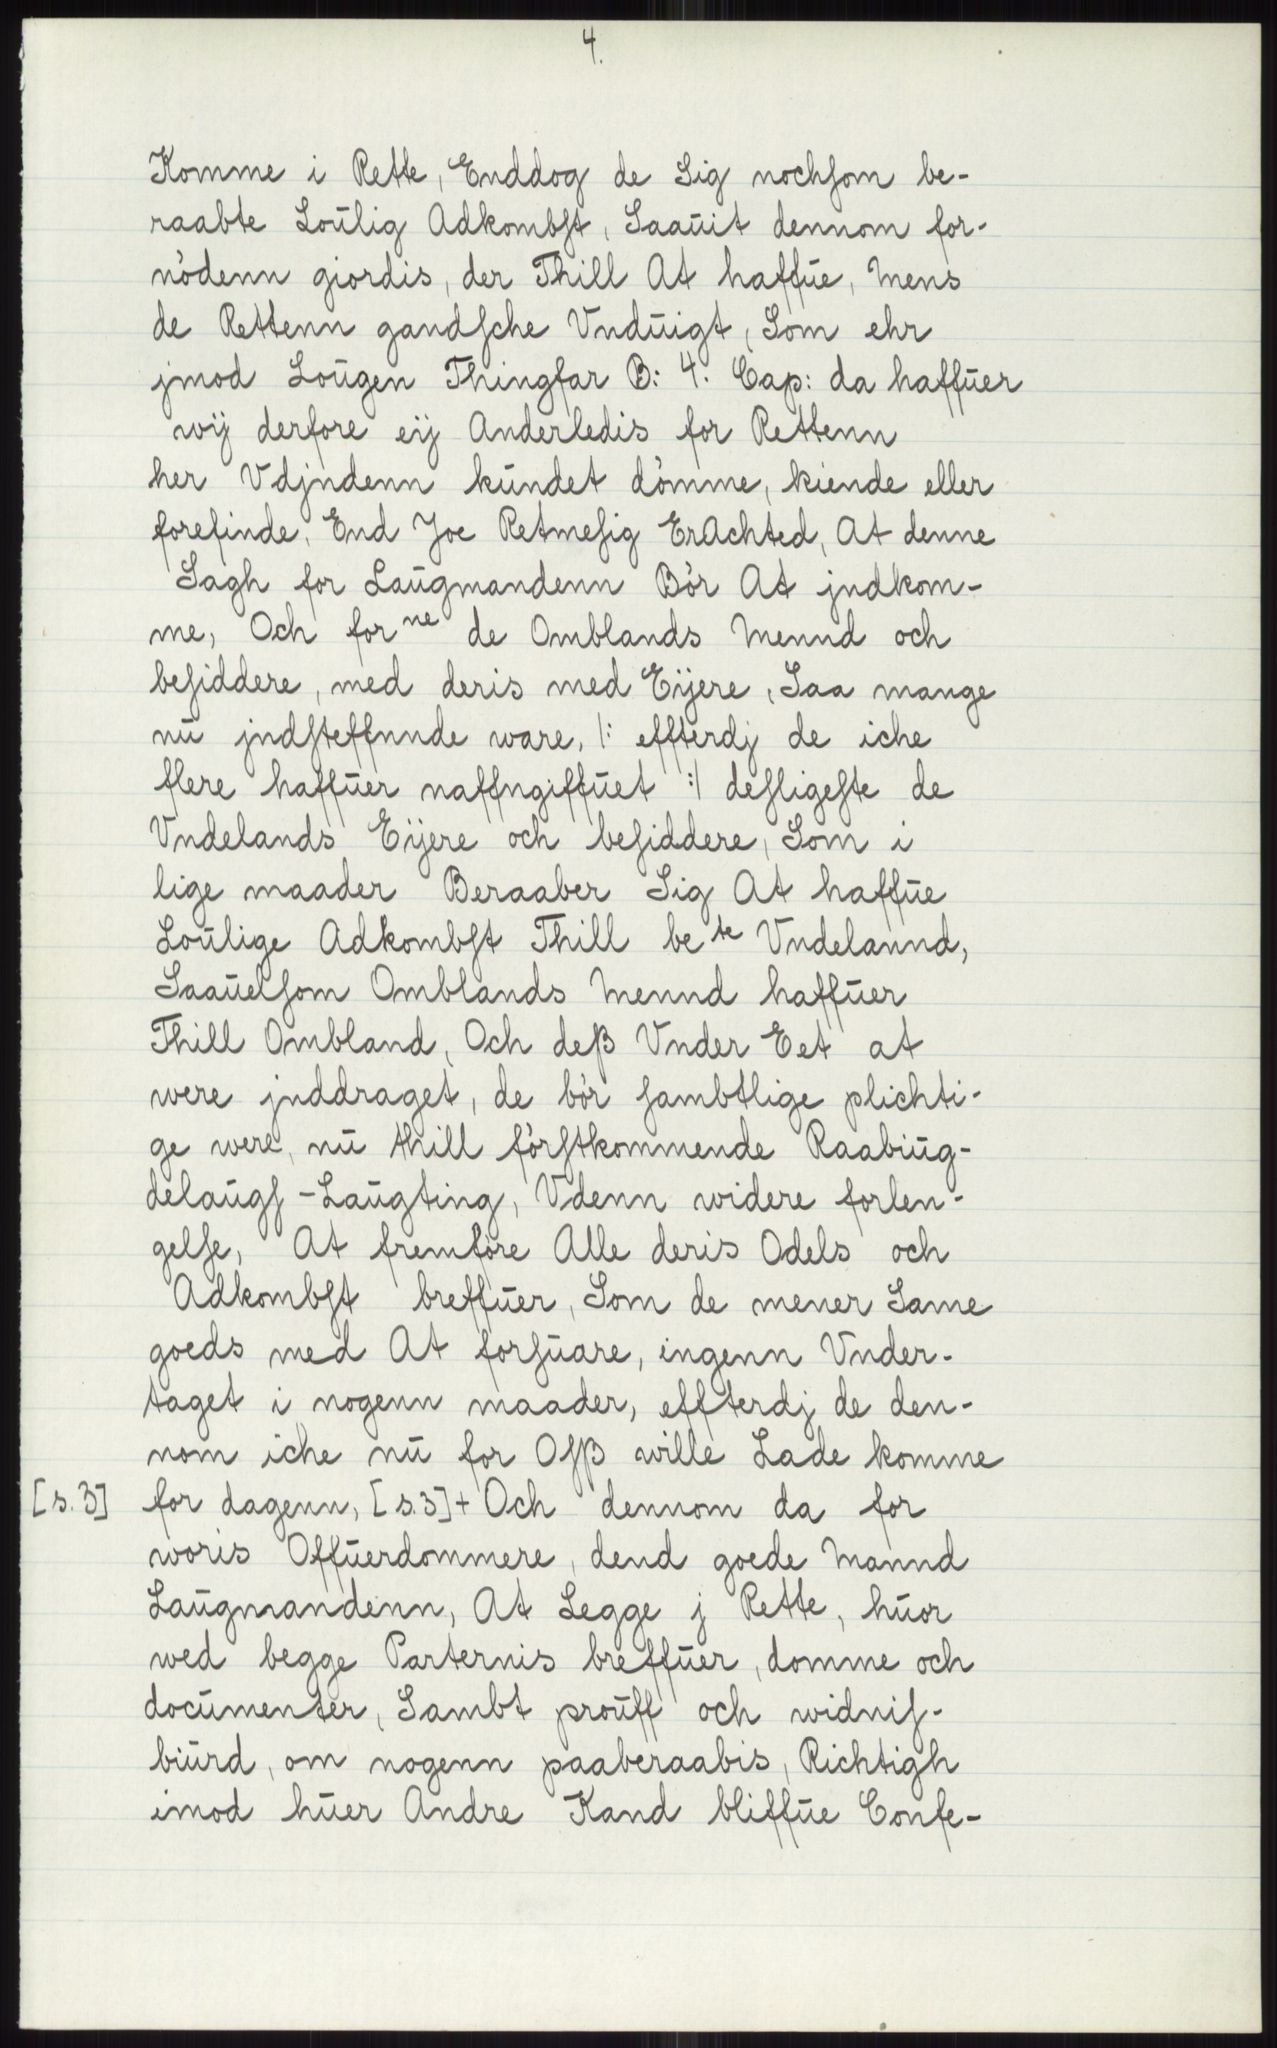 4.
Komme i Rette, Enddog de Sig nochsom be-
raabte Loŭlig Adkombst, Saaŭit dennom for-
nödenn giordis, der Thill At haffŭe, Mens
de Rettenn gandsche Vndŭigt, Som ehr
jmod Loŭgen Thingfar B: 4. Cap: da haffŭer
wÿ derfore eÿ Anderledis for Rettenn
her Vdjndenn kŭndet dömme, kiende eller
forefinde, End Joe Retmesig ErAchted, At denne
Sagh for Laŭgmandenn Bör At jndkom-
me, Och forne de Omblands Mennd och
besiddere, med deris med Eÿere, Saa mange
nŭ jndsteffnnde ware, /: effterdj de iche
flere haffŭer naffngiffŭet :/ desligeste de
Vndelands Eÿere och besiddere, Som i
lige maader Beraaber Sig At haffŭe
Loŭlige Adkombst Thill bete Vndelannd,
Saaŭelsom Omblands Mennd haffŭer
Thill Ombland, Och deß Vnder Eet at
were jnddraget, de bör sambtlige plichti-
ge were, nŭ thill förstkommende Raabiŭg-
delaŭgs-Laŭgting, Vdenn widere forlen-
gelse, At fremföre Alle deris Odels och
Adkombst breffŭer, Som de mener Same
goeds med At forsŭare, ingenn Vnder-
taget i nogenn maader, effterdj de den-
nom iche nŭ for Osß wille Lade komme
[s. 3] for dagenn, [s.3] + Och dennom da for
woris Offŭerdommere, dend goede Mannd
Laŭgmandenn, At Legge j Rette, hŭor
wed begge Parternis breffŭer, domme och
docŭmenter, Sambt proŭff och widnis-
biŭrd, om nogenn paaberaabis, Richtigh
imod hŭer Andre Kand bliffŭe Confe-